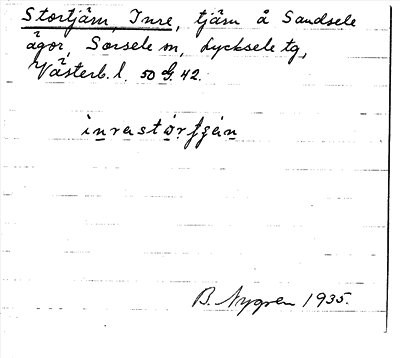 Stortjärn, Inre, tjärn å Sandsele
ägor, Sorsele sn, Lycksele tg,
Västerb. l. 50 G. 42.
inrastórfjän
B. Nygren 1935.